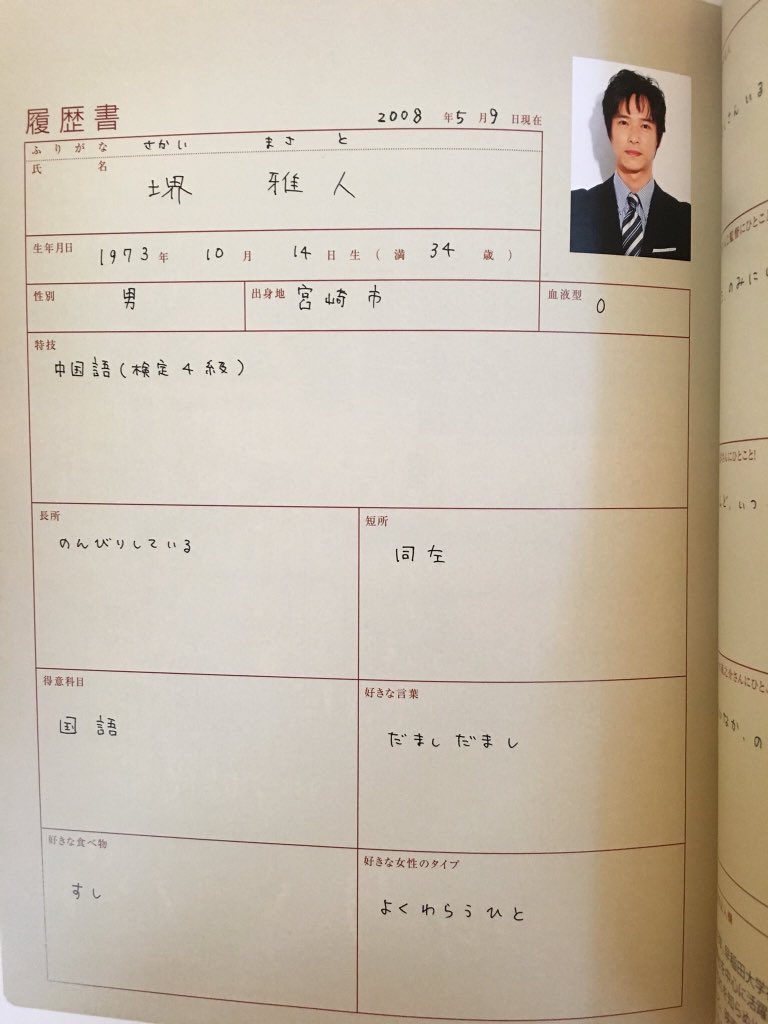 履歴書
2008 年 5 月 9 日現在
ふりがな さかい まさと
氏名 堺 雅人
生年月日 1973 年 10 月 14 日生(満 34 歳)
性別 男
出身地 宮崎市
血液型 O
特技
中国語(検定4級)
長所
のんびりしている
短所
同左
得意科目
国語
好きな言葉
だましだまし
好きな食べ物
すし
好きな女性のタイプ
よくわらうひと